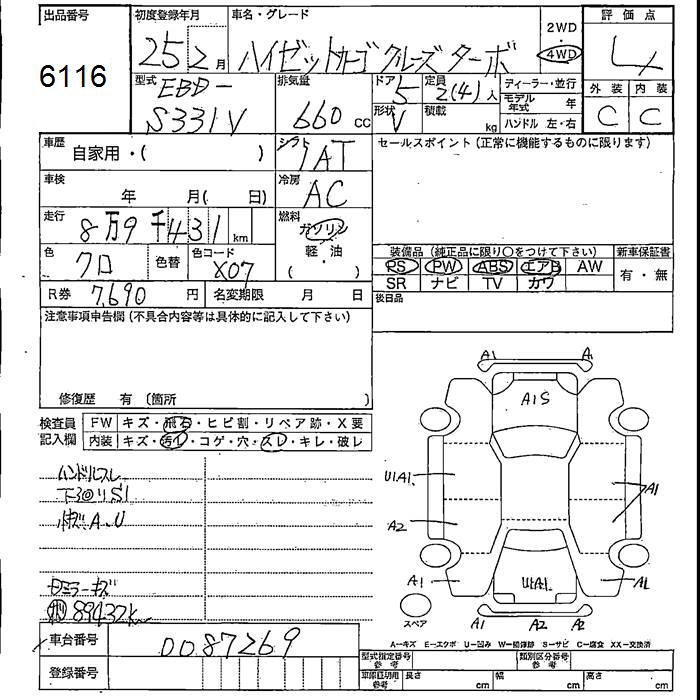 出品番号
6116
初度登録年月
25年2月
車名・グレード
ハイゼットカーゴ クルーズターボ
2WD
4WD
評価点
4
外装 内装
C C
型式
EBD-
S331V
排気量
660 cc
ドア
5
形状
V
定員
2(4)人
積載
kg
ディーラー・並行
モデル年式 年
ハンドル 左・右
車歴
自家用・( )
シフト
IAT
セールスポイント(正常に機能するものに限ります)
車検
年 月( 日)
冷房
AC
走行
8万9千431km
燃料
ガソリン
軽・油
( )
色
クロ
色替
色コード
X07
装備品(純正品に限り○をつけて下さい)
新車保証書
PS PW ABS エアB AW
SR ナビ TV カワ
有・無
R券 7,690 円
名変期限 月 日
後日品
注意事項申告欄(不具合内容等は具体的に記入して下さい)
修復歴 有〔箇所 〕
検査員
記入欄
FW キズ・飛石・ヒビ割・リペア跡・X要
内装 キズ・汚レ・コゲ・穴・スレ・キレ・破レ
ハンドルスレ
下回りS1
A.U
ミラーキズ
89432k
車台番号
0087269
登録番号
A1 A1
A1S
U1A1
A1
A2
A1
U1A1
A1
スペア
A1 A2 A2
A-キズ E-エクボ U-凹み W-補修跡 S-サビ C-腐食 XX-交換済
型式指定番号
参考
類別区分番号
参考
車庫証明用
参考
長さ cm
幅 cm
高さ cm